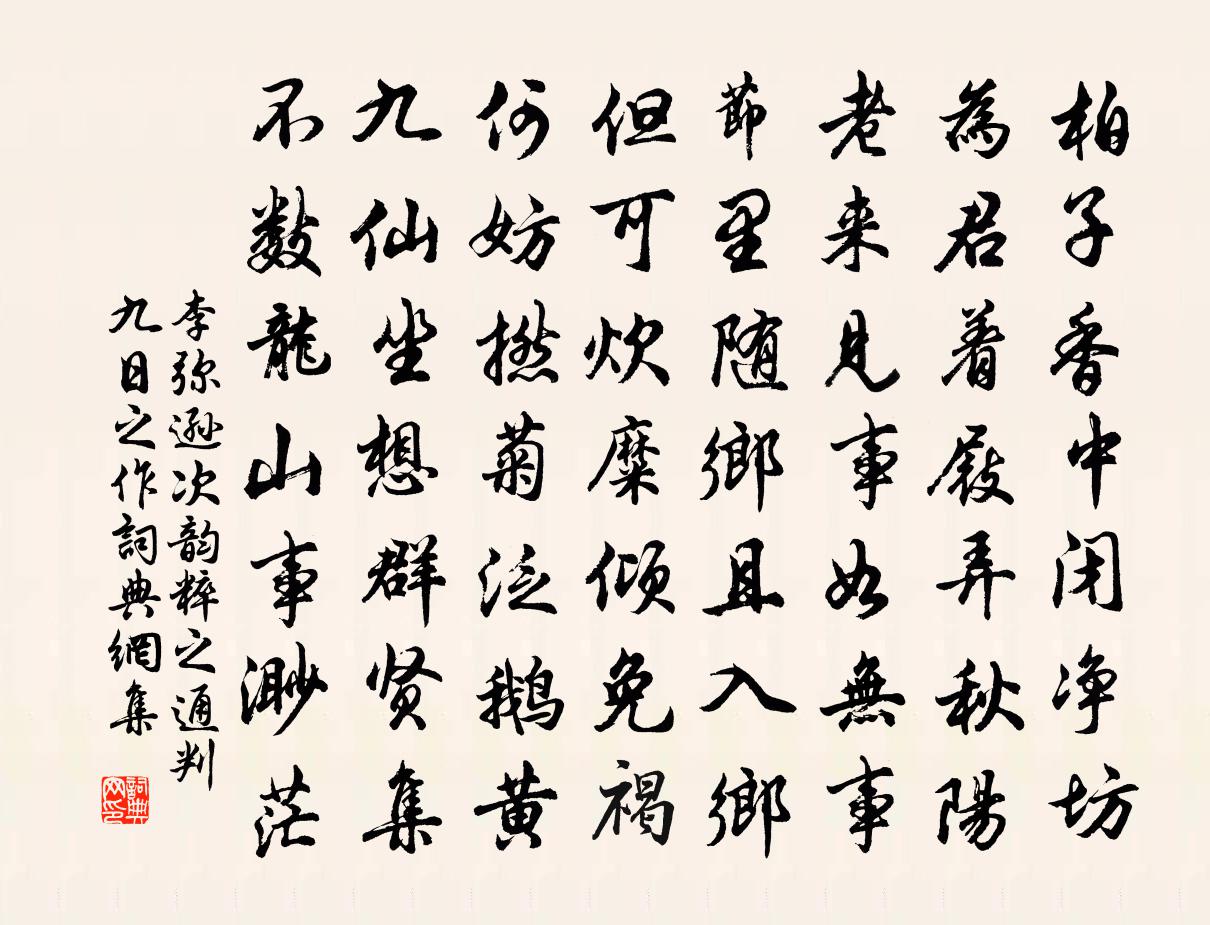 柏子香中闭净坊
為君着屐弄秋陽
老来見事如無事
節里随鄉且入鄉
但可炊糜傾免褐
何妨撚菊泛鹅黄
九仙坐想群贤集
不数龍山事渺茫
李弥遜次韵粹之通判
九日之作詞典網集
詞典
网印